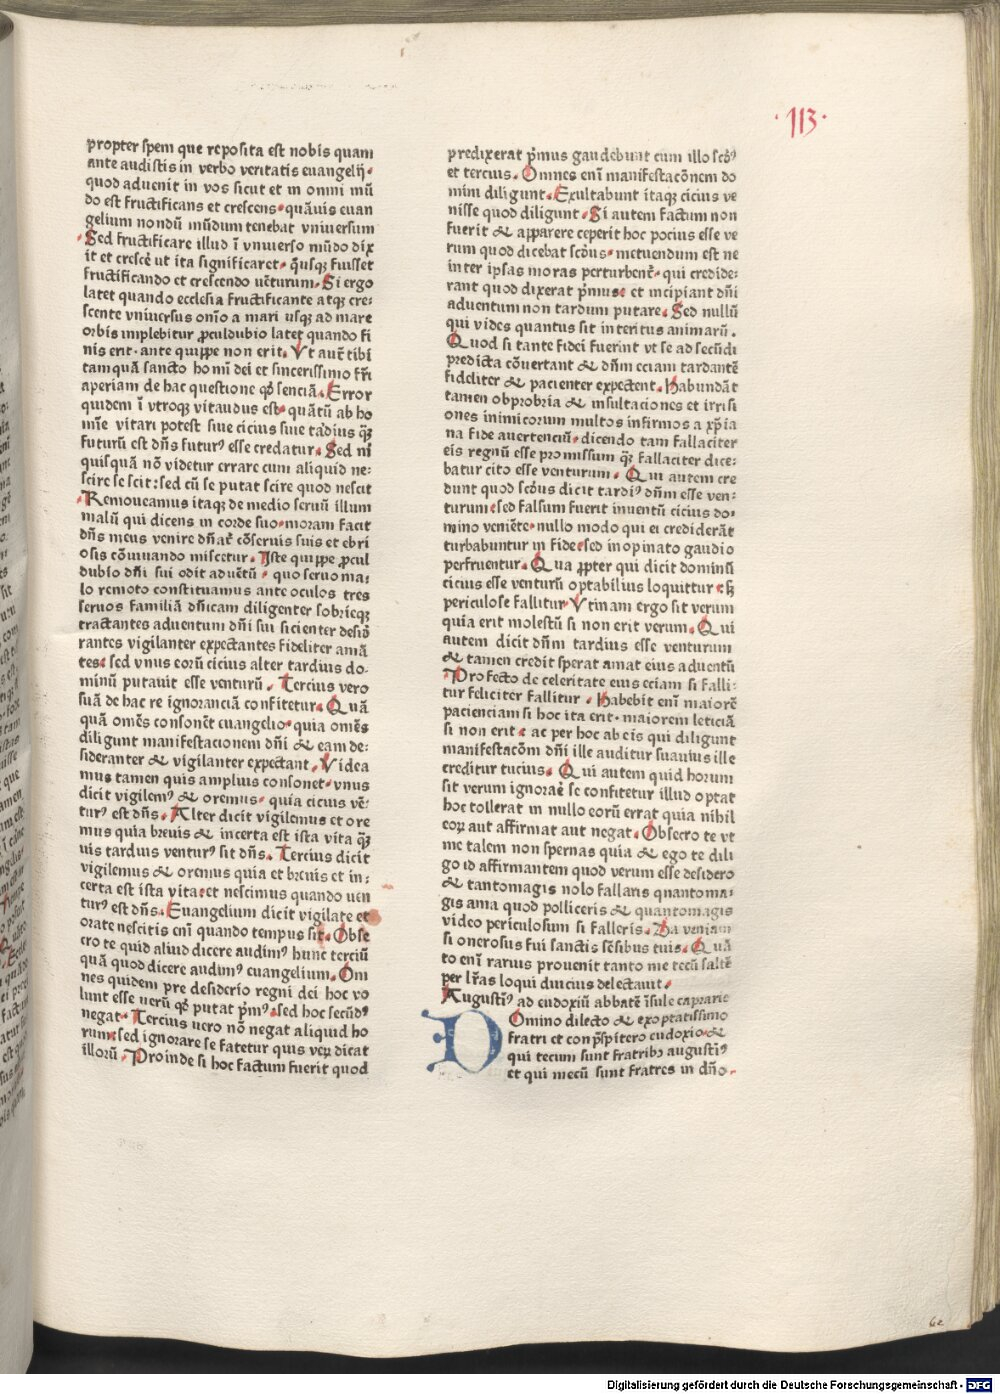 ·113·
propter spem que reposita est nobis quam
ante audistis in verbo veritatis euangelij·
quod aduenit in vos sicut et in omni mū
do est fructificans et crescens·quāuis euan
gelium nondū mūdum tenebat vniuersum
·Sed fructificare illud ī vniuerso mūdo dix
it et crescē ut ita significaret·q̄usqʒ fuisset
fructificando et crescendo uēturum·Si ergo
latet quando ecclesia fructificante atqʒ cre⸗
scente vniuersus onīo a mari usqʒ ad mare
orbis implebitur ꝓculdubio latet quando fi
nis erit·ante quippe non erit. Vt aut̄ tibi
tamquā sancto homī dei et sincerissimo fr̄i
aperiam de hac questione qd̄ senciā. Error
quidem ī vtroqʒ vitandus est·quātū ab ho
mīe vitari potest siue cicius siue tadius qʒ
futurū est dn̄s futurꝰ esse credatur. Sed nī
quisquā nō videtur errare cum aliquid ne⸗
scire se scit:sed cū se putat scire quod nescit
·Remoueamus itaqʒ de medio seruū illum
malū qui dicens in corde suo·moram facit
dn̄s meus venire dn̄at̄ cōseruis suis et ebri
osis cōuiuando miscetur. Iste quippe ꝓcul
dubio dn̄i sui odit aduētū · quo seruo ma⸗
lo remoto constituamus ante oculos tres
seruos familiā dn̄icam diligenter sobrieqʒ
tractantes aduentum dn̄i sui sicienter desiō
rantes vigilanter expectantes fideliter amā
tes·sed vnus eorū cicius alter tardius do⸗
minū putauit esse venturū . Tercius vero
suā de hac re ignoranciā confitetur. Quā
quā omēs consonēt euangelio·quia omēs
diligunt manifestacionem dn̄i & eam de⸗
sideranter & vigilanter expectant. Videa
mus tamen quis amplius consonet·vnus
dicit vigilemꝰ & oremus· quia cicius vē⸗
turꝰ est dn̄s. Alter dicit vigilemus et ore
mus quia breuis & incerta est ista vita qʒ
uis tardius venturꝰ sit dn̄s. Tercius dicit
vigilemus & oremus quia et breuis et in⸗
certa est ista vita:et nescimus quando uen
turꝰ est dn̄s. Euangelium dicit vigilate et
orate nescitis enī quando tempus sit. Obse
cro te quid aliud dicere audimꝰ hunc terciū
quā quod dicere audimꝰ euangelium. Om
nes quidem pre desiderio regni dei hoc vo
lunt esse uerū qd̄ putat p̄mꝰ.sed hoc secūdꝰ
negat· Tercius uero nō negat aliquid ho
rum:sed ignorare se fatetur quis veꝝ dicat
illorū . Proinde si hoc factum fuerit quod
predixerat p̄mus gaudebunt cum illo sc̄dꝰ
et tercius. Omnes enī manifestacōnem do
mini diligunt. Exultabunt itaqʒ cicius ve
nisse quod diligunt. Si autem factum non
fuerit & apparere ceperit hoc pocius esse ve
rum quod dicebat sc̄dus·metuendum est ne
inter ipsas moras perturbent̄·qui credide⸗
rant quod dixerat p̄mus: et incipiant dn̄i
aduentum non tardum putare. Sed nullū
qui vides quantus sit interitus animarū .
Quod si tante fidei fuerint vt se ad secūdi
predicta cōuertant & dn̄m eciam tardantē
fideliter & pacienter expectent. Habundāt
tamen obprobria & insultaciones et irrisi
ones inimicorum multos infirmos a xp̄ia
na fide auertenciū·dicendo tam fallaciter
eis regnū esse promissum qʒ fallaciter dice⸗
batur cito esse venturum . Qui autem cre
dunt quod sc̄dus dicit tardiꝰ dn̄m esse ven⸗
turum:sed falsum fuerit inuentū cicius do⸗
mino veniēte·nullo modo qui ei crediderāt
turbabuntur in fide:sed inopinato gaudio
perfruentur. Qua ꝓpter qui dicit dominū
cicius esse venturū optabilius loquittur:sʒ
periculose fallitur· Vtinam ergo sit verum
quia erit molestū si non erit verum. Qui
autem dicit dn̄m tardius esse venturum
& tamen credit sperat amat eius aduentū
·Profecto de celeritate eius eciam si falli⸗
tur feliciter fallitur . Habebit enī maiorē
pacienciam si hoc ita erit·maiorem leticiā
si non erit: ac per hoc ab eis qui diligunt
manifestacōm dn̄i ille auditur suauius ille
creditur tucius. Qui autem quid horum
sit verum ignorare se confitetur illud optat
hoc tollerat in nullo eorū errat quia nihil
eoꝝ aut affirmat aut negat. Obsecro te vt
me talem non spernas quia & ego te dili
go id affirmantem quod verum esse desidero
& tantomagis nolo fallaris quantoma⸗
gis ama quod polliceris & quantomagis
video periculosum si falleris. Da veniam
si onerosus fui sanctis sēsibus tuis. Quā
to enī rarius prouenit tanto me tecū saltē
per lr̄as loqui diucius delectauit.
Augustīꝰ ad eudoxiū abbatē īsule caprarie
DOmino dilecto & exoptatissimo
fratri et conp̄spitero eudoxio &
qui tecum sunt fratribꝰ augustīꝰ
et qui mecū sunt fratres in dn̄o·
62
Digitalisierung gefördert durch die Deutsche Forschungsgemeinschaft - DFG